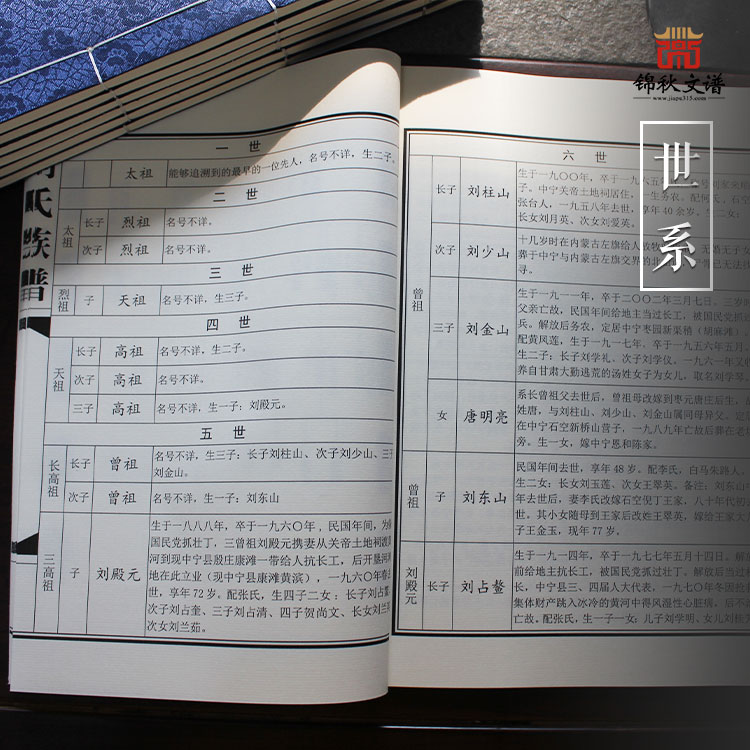 锦秋文谱
www.jiapu315.com
世系
氏族谱
一世
太祖
能够追溯到的最早的一位先人，名号不详，生二子。
二世
太祖
长子
烈祖
名号不详。
次子
烈祖
名号不详。
三世
烈祖
子
天祖
名号不详，生三子。
四世
天祖
长子
高祖
名号不详，生二子。
次子
高祖
名号不详。
三子
高祖
名号不详，生一子：刘殿元。
五世
长高祖
长子
曾祖
名号不详，生三子：长子刘柱山、次子刘少山、三子
刘金山。
次子
曾祖
名号不详，生一子：刘东山
三高祖
子
刘殿元
生于一八八八年，卒于一九六〇年，民国年间，为
国民党抓壮丁，三曾祖刘殿元携妻从关帝土地祠渡
河到现中宁县殷庄康滩一带给人抗长工，后开垦
地在此立业（现中宁县康滩黄滨），一九六〇年
世，享年72岁。配张氏，生四子二女：长子刘占鳌
次子刘占奎、三子刘占清、四子贺尚文、长女刘兰
次女刘兰茹。
六世
曾祖
长子
刘柱山
生于一九〇〇年，卒于一九六五
子。中宁关帝土地祠居住，一生务农。配何氏，石空
张台人，一九五八年去世，享年40余岁。生二女：
长女刘月英、次女刘爱英。
次子
刘少山
十几岁时在内蒙古左旗给人放牧
葬于中宁与内蒙古左旗交界的北
寻。
三子
刘金山
生于一九一一年，卒于二〇〇二年三月七日，三岁
父亲亡故，民国年间给地主当过长工，被国民党抓
兵。解放后务农，定居中宁枣园新渠稍（胡麻滩）
配黄凤莲，生于一九一七年，卒于一九五六年五月
生二子：长子刘学礼、次子刘学仪。一九六一年又
养自甘肃大勤逃荒的汤姓女子为女儿，取名刘学琴
女
唐明亮
系长曾祖父去世后，曾祖母改嫁到枣元唐庄后生，
姓唐，与刘柱山、刘少山、刘金山属同母异父。
在中宁石空新桥山营子，一九八九年亡故后葬在老
旁。生一女，嫁中宁恩和陈家。
曾祖
子
刘东山
民国年间去世，享年48岁。配李氏，白马朱路人，
女：长女刘玉莲、次女王翠英。备注：刘东山
年去世后，妻李氏改嫁石空倪丁王家，八十年代
世。其小女随母到王家后改姓王翠英，嫁给王家大
子王金玉，现年77岁。
刘殿元
长子
刘占鳌
生于一九一四年，卒于一九七七年五月十四日。解
前给地主抗长工，被国民党抓过壮丁。解放后当过
长，中宁县三、四届人大代表，一九七〇年冬因抢
集体财产跳入冰冷的黄河中得风湿性心脏病，后不
亡故。配张氏，生一子一女：儿子刘学明、女儿刘